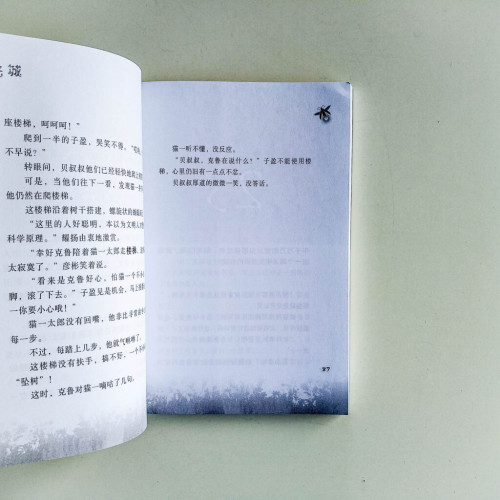 城
座楼梯，呵呵呵！”
爬到一半的子盈，哭笑不得，
不早说？”
转眼间，贝叔叔他们已经轻快地
可是，当他们往下一看，发现猫一
他仍然在爬楼梯。
这楼梯沿着树干搭建，螺旋状的
“这里的人好聪明，本以为文明人
科学原理。”耀扬由衷地激赏。
“幸好克鲁陪着猫一太郎在楼梯，
太寂寞了。”彦彬笑着说。
“看来是克鲁好心，怕猫一个不
脚，滚了下去。”子盈见是机会，马上
一你要小心哦！”
猫一太郎没有回嘴，他拿比寻常
每一步。
不过，每踏上几步，他就气
这楼梯没有扶手，搞不好，一个不
“坠树”！
这时，克鲁对猫一嘀咕了几句。
猫一听不懂，没反应。
“贝叔叔，克鲁在说什么？”子盈不能使用楼
梯，心里仍旧有一点点不忿。
贝叔叔那道的微微一笑，没答话。
87